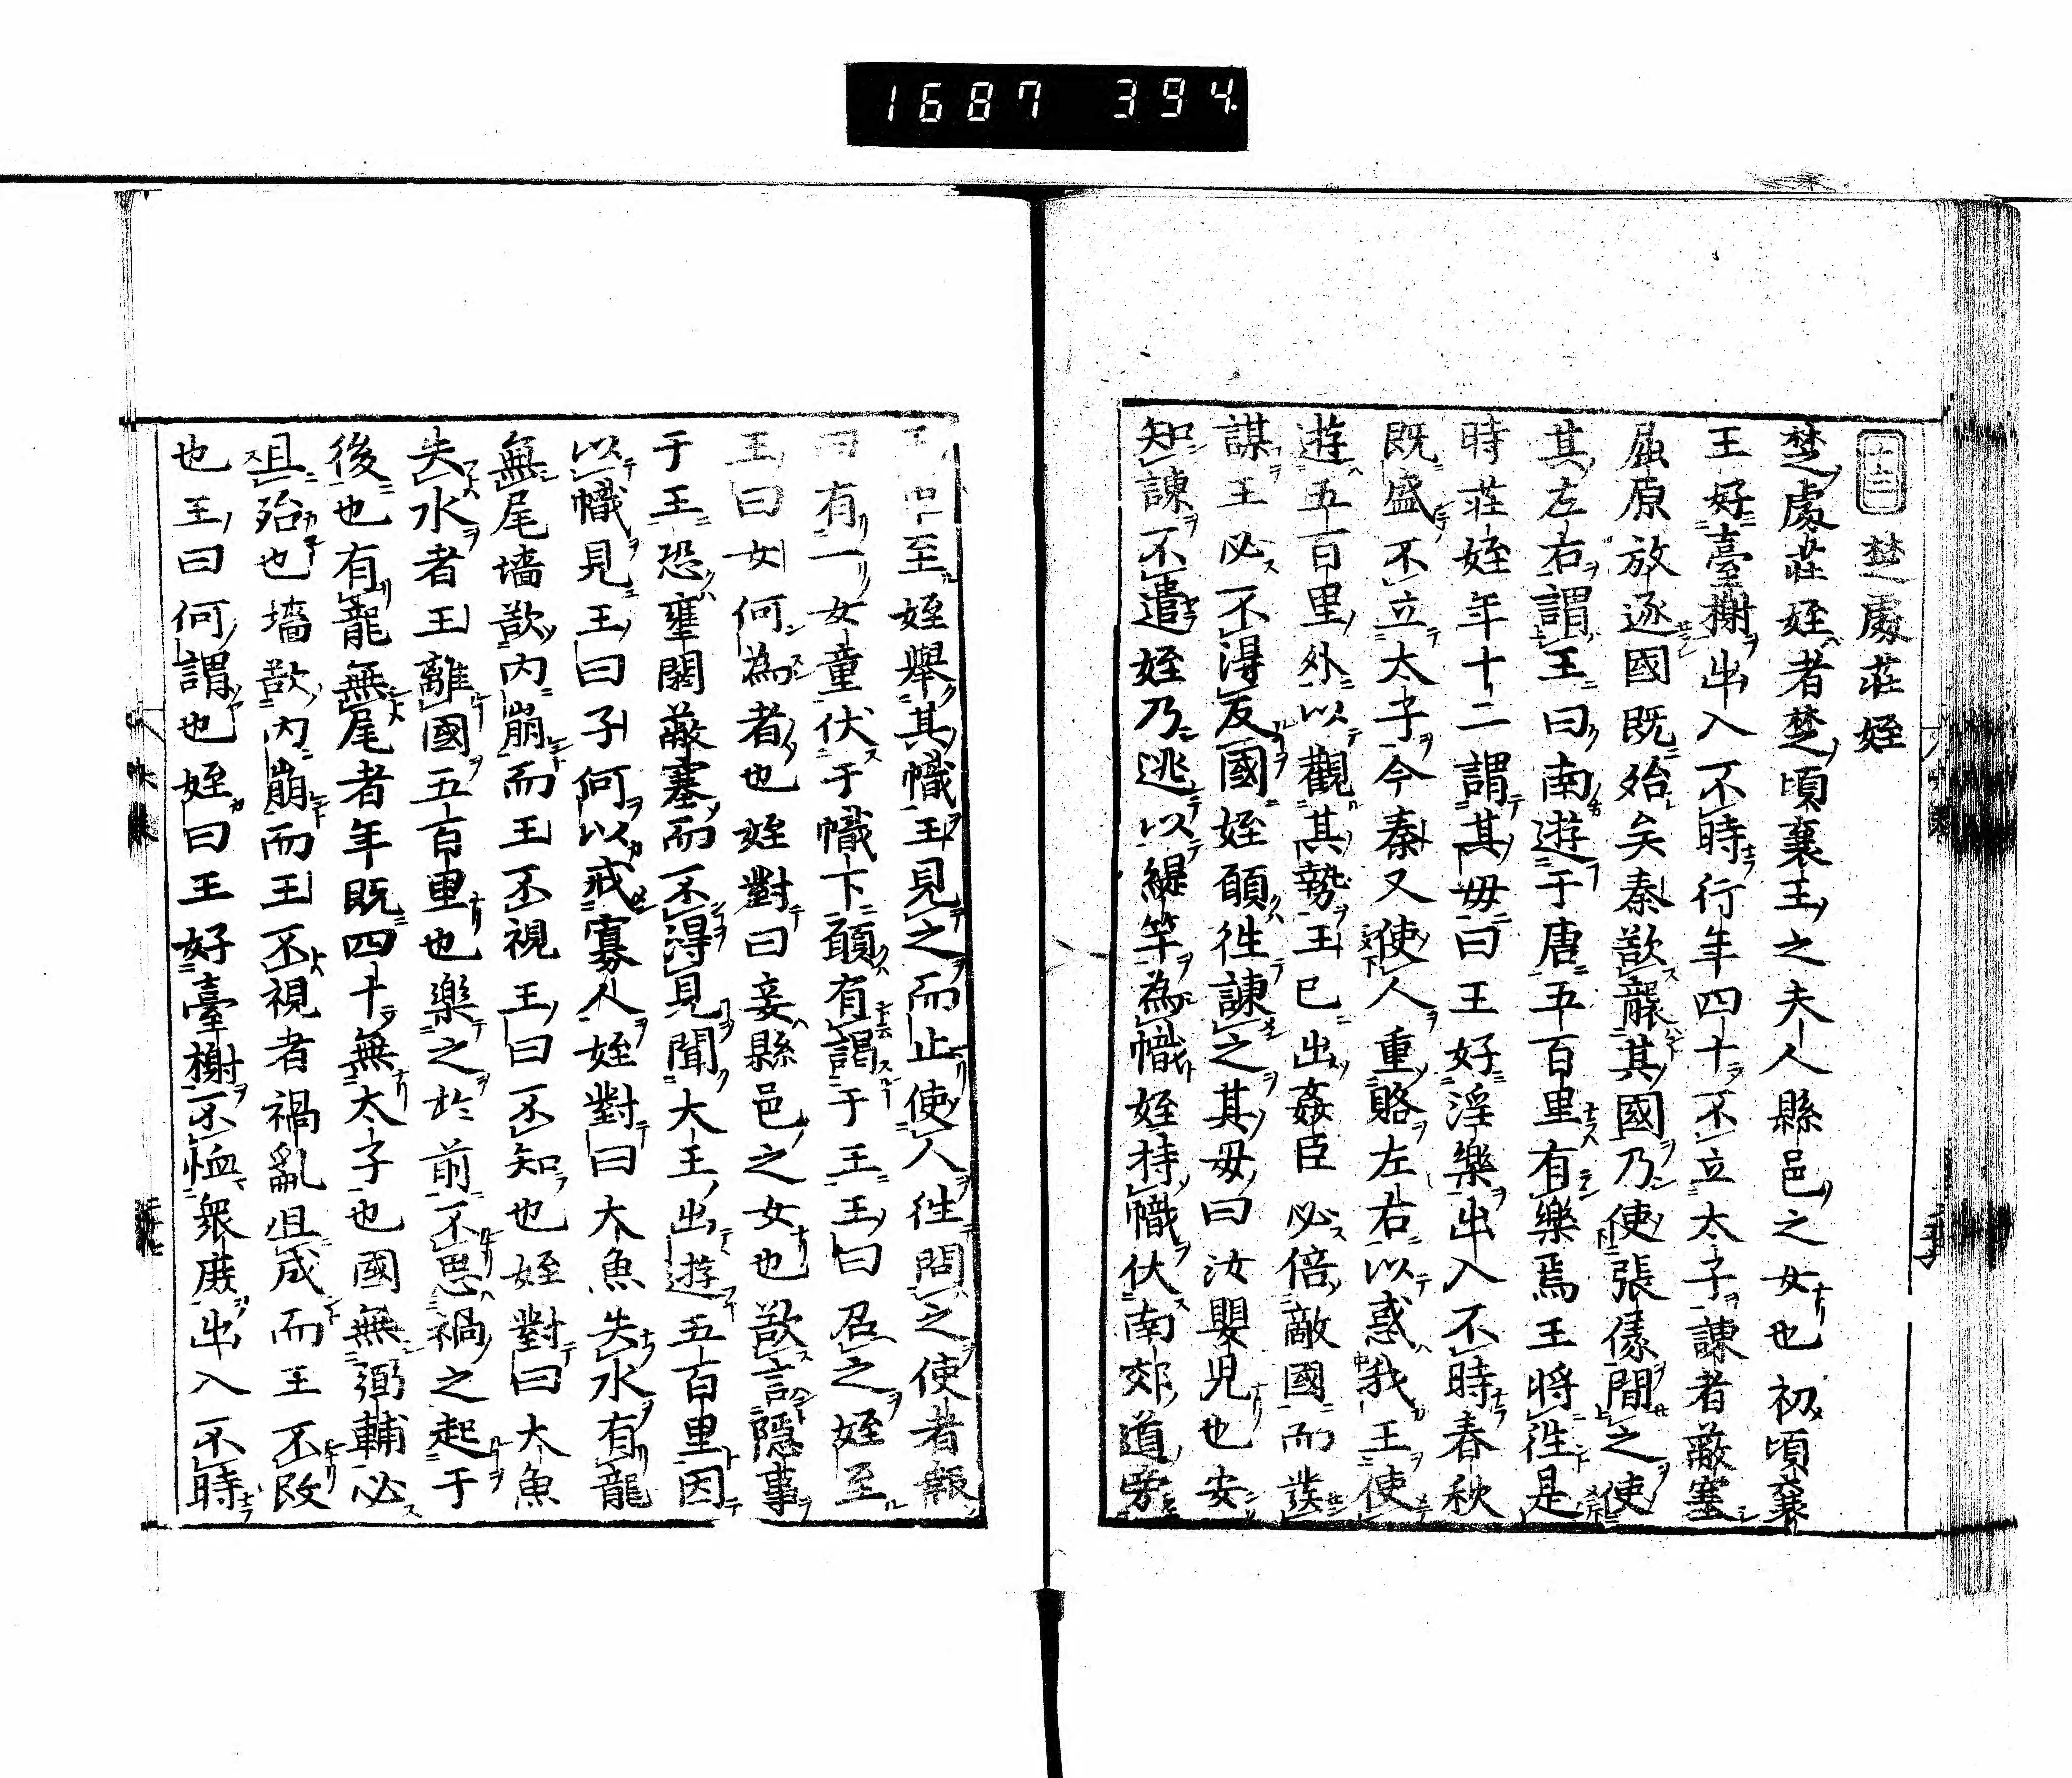 1687 394
十二 楚處莊姪
楚處莊姪者楚頃襄王之夫人縣邑之女也初頃襄
王好臺榭出入不時行年四十不立太子諫者蔽塞
屈原放逐國既殆矣秦欲襲其國乃使張儀間之使
其左右謂王曰南遊于唐五百里有樂焉王将徃是
時莊姪年十二謂其母曰王好淫樂出入不時春秋
既盛不立太子今秦又使人重賂左右以惑我王使
遊五百里外以觀其勢王已出姦臣必倍敵國而發
謀王必不得反國姪願徃諫之其母曰汝嬰兒也安
知諫不遣姪乃逃以緹竿為幟姪持幟伏南郊道旁
王車至姪舉其幟王見之而止使人徃問之使者報
曰有一女童伏于幟下願有謁于王王曰召之姪至
王曰女何為者也姪對曰妾縣邑之女也欲言隱事
于王恐壅閼蔽塞而不得見聞大王出遊五百里因
以幟見王曰子何以戒寡人姪對曰大魚失水有龍
無尾墻欲内崩而王不視王曰不知也姪對曰大魚
失水者王離國五百里也樂之於前不思禍之起于
後也有龍無尾者年既四十無太子也國無弼輔必
且殆也墻欲内崩而王不視者禍亂且成而王不改
也王曰何謂也姪曰王好臺榭不恤衆庶出入不時